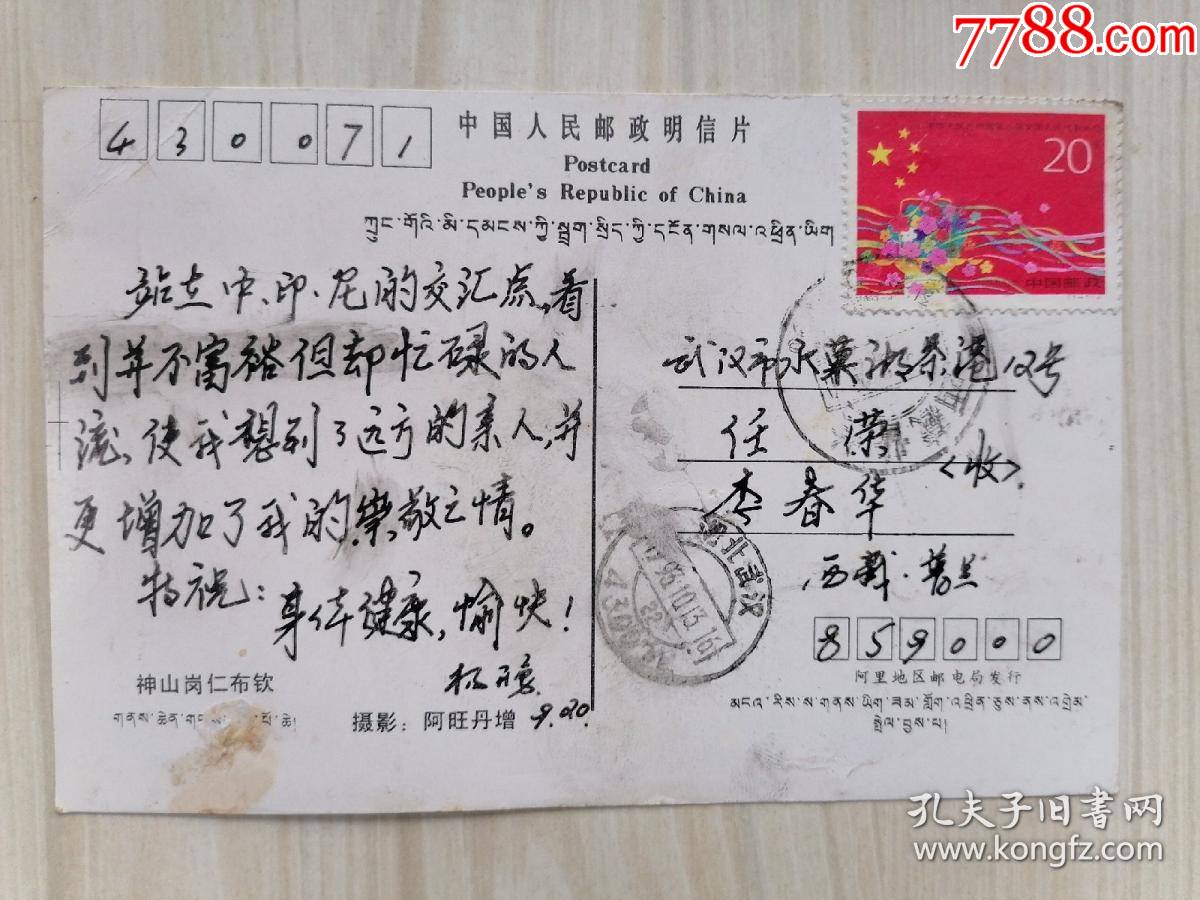 7788.com
430071
中国人民邮政明信片
Postcard
People's Republic of China
ཀྲུང་གོའི་མི་དམངས་ཀྱི་སྦྲག་སྲིད་ཀྱི་དངོན་གསལ་འཕྲིན་ཡིག
20
中国邮政
站立中、印、尼的交汇点,看
到并不富裕但却忙碌的人
流,使我想到了远方的亲人,并
更增加了我的崇敬之情。
特祝:
身体健康,愉快!
杨
9.20.
神山岗仁布钦
摄影:阿旺丹增
武汉市水果湖茶港12号
任 荣
李春华
<收>.
西藏·普兰
湖北武汉
859000
阿里地区邮电局发行
མངའ་རིས་ས་གནས་ཡིག་ཟམ་གློག་འཕྲིན་ཅུས་ནས་འགྲེམ་
སྤེལ་བྱས་པ།
孔夫子旧书网
www.kongfz.com